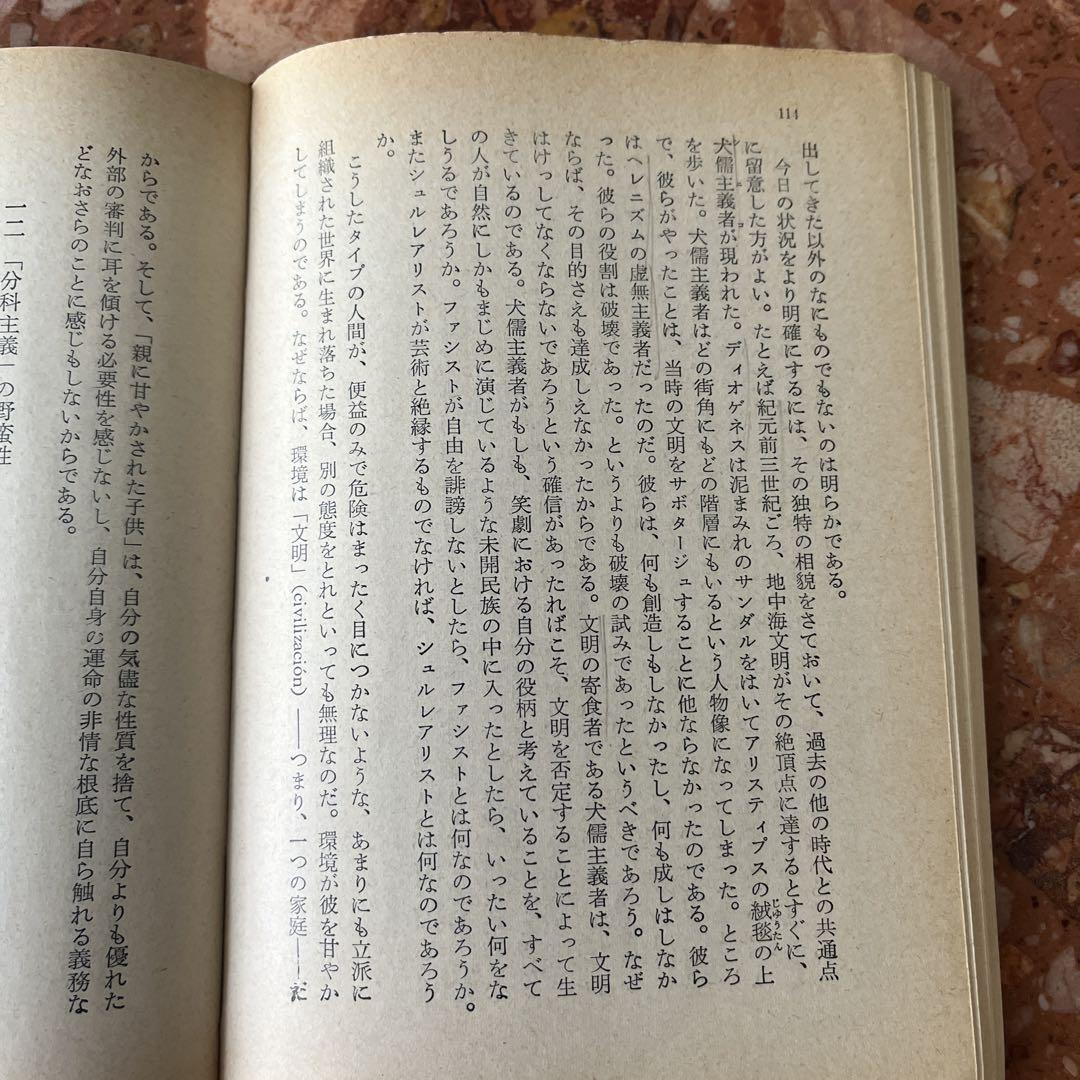 114
出してきた以外のなにものでもないのは明らかである。
今日の状況をより明確にするには、その独特の相貌をさておいて、過去の他の時代との共通点
に留意した方がよい。たとえば紀元前三世紀ごろ、地中海文明がその絶頂点に達するとすぐに、
犬儒主義者が現われた。ディオゲネスは泥まみれのサンダルをはいてアリスティプスの絨毯の上
じゅうたん
を歩いた。犬儒主義者はどの街角にもどの階層にもいるという人物像になってしまった。ところ
で、彼らがやったことは、当時の文明をサボタージュすることに他ならなかったのである。彼ら
はヘレニズムの虚無主義者だったのだ。彼らは、何も創造しもしなかったし、何も成しはしなか
った。彼らの役割は破壊であった。というよりも破壊の試みであったというべきであろう。なぜ
ならば、その目的さえも達成しえなかったからである。文明の寄食者である犬儒主義者は、文明
はけっしてなくならないであろうという確信があったればこそ、文明を否定することによって生
きているのである。犬儒主義者がもしも、笑劇における自分の役柄と考えていることを、すべて
の人が自然にしかもまじめに演じているような未開民族の中に入ったとしたら、いったい何をな
しうるであろうか。ファシストが自由を誹謗しないとしたら、ファシストとは何なのであろうか。
またシュルレアリストが芸術と絶縁するものでなければ、シュルレアリストとは何なのであろう
か。
こうしたタイプの人間が、便益のみで危険はまったく目につかないような、あまりにも立派に
組織された世界に生まれ落ちた場合、別の態度をとれといっても無理なのだ。環境が彼を甘やか
してしまうのである。なぜならば、環境は「文明」（civilización）――つまり、一つの家庭――だ
からである。そして、「親に甘やかされた子供」は、自分の気儘な性質を捨て、自分よりも優れた
外部の審判に耳を傾ける必要性を感じないし、自分自身の運命の非情な根底に自ら触れる義務な
どなおさらのことに感じもしないからである。
一二 「分科主義」の野蛮性